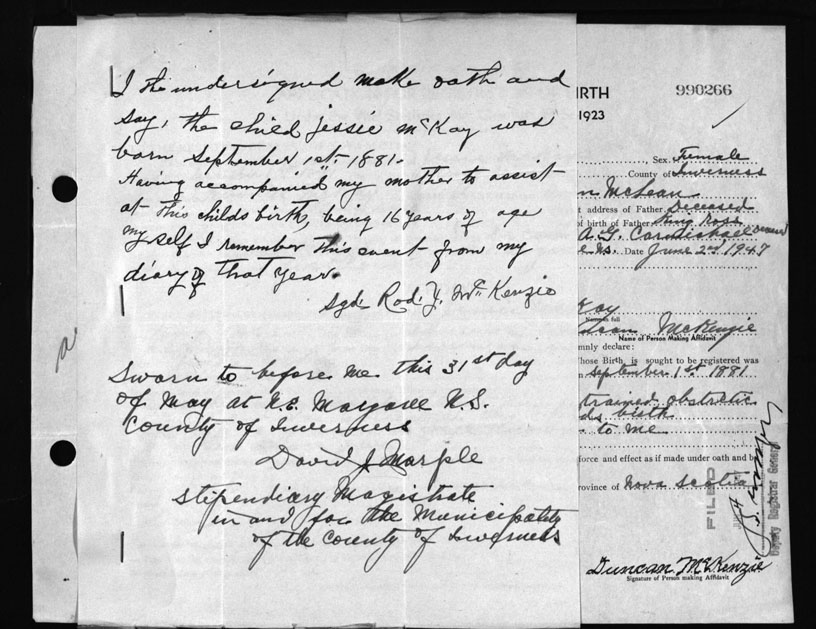 I the undersigned make oath and
say, the child Jessie McKay was
born September 1st. 1881.
Having accompanied my mother to assist
at this childs birth, being 16 years of age
myself I remember this event from my
diary of that year.
Sgd. Rod. Y. McKenzie
Sworn to before me this 31st day
of May at N.E. Margaree N.S.
County of Inverness
David J. Marple
Stipendiary Magistrate
in and for the Municipality
of the County of Inverness
IRTH 990266
1923
Sex Female
County of Inverness
n McLean
address of Father Deceased
of birth of Father King Ross
A. G. Carmichael Deceased
Date June 2nd 1947
Kay
Name in full
McKenzie
Name of Person Making Affidavit
mnly declare:
hose Birth, is sought to be registered was
September 1st 1881
trained obstetric
ds birth
to me
force and effect as if made under oath and b
rovince of Nova Scotia
FILED
Deputy Registrar General
Duncan McKenzie
Signature of Person making Affidavit